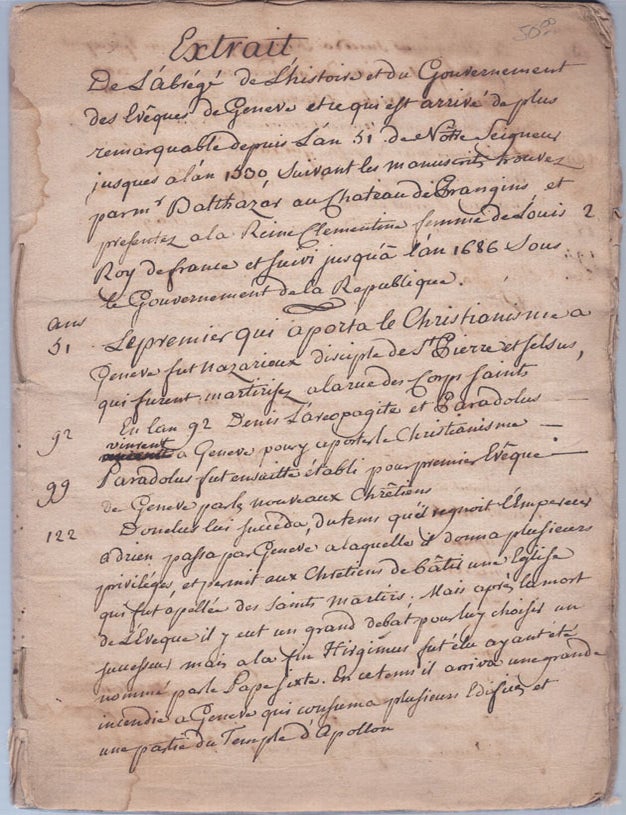 50.00
Extrait
De L'abrégé de L'histoire et du Gouvernement
des Evêques de Geneve et ce qui est arrivé de plus
remarquable depuis L'an 51 de Nôtre Seigneur
jusques a lán 1530 Suivant les manuscrits trouvez
par mr Balthazar au Chateau de Prangins et
presentez a la Reine Clementine femme de Louis 2
Roy de france et suivi jusqu'a lán 1686 Sous
le Gouvernement de la Republique.
ans
51 Le premier qui aporta le Christianisme a
Geneve fut Nazarieux disciple de St Pierre et Selsus,
qui furent martirisez a la rue des Corps Saints
92 En lan 92 Denis L'areopagite et Paradolus
vinrent
a Geneve pour y aporter le Christianisme —
99 Paradolus fut ensuitte établi pour premier Evêque —
de Geneve par les nouveaux Chrêtiens
122 Donelus lui succeda, du tems qu'il regnoit l'Empereur
Adrien passa par Geneve, a laquelle il donna plusieurs
privileges, et permit aux Chrêtiens de bâtir une Eglise
qui fut apellée des Saints Martirs. Mais aprés la mort
de L'Eveque il y eut un grand debat pour luy choisir un
successeur mais a la fin Hirginus fut élu ayant été
nommé par le Pape Sixte. En ce tems il arriva une grande
incendie a Geneve qui consuma plusieurs Edifices et
une partie du Temple d'Apollon